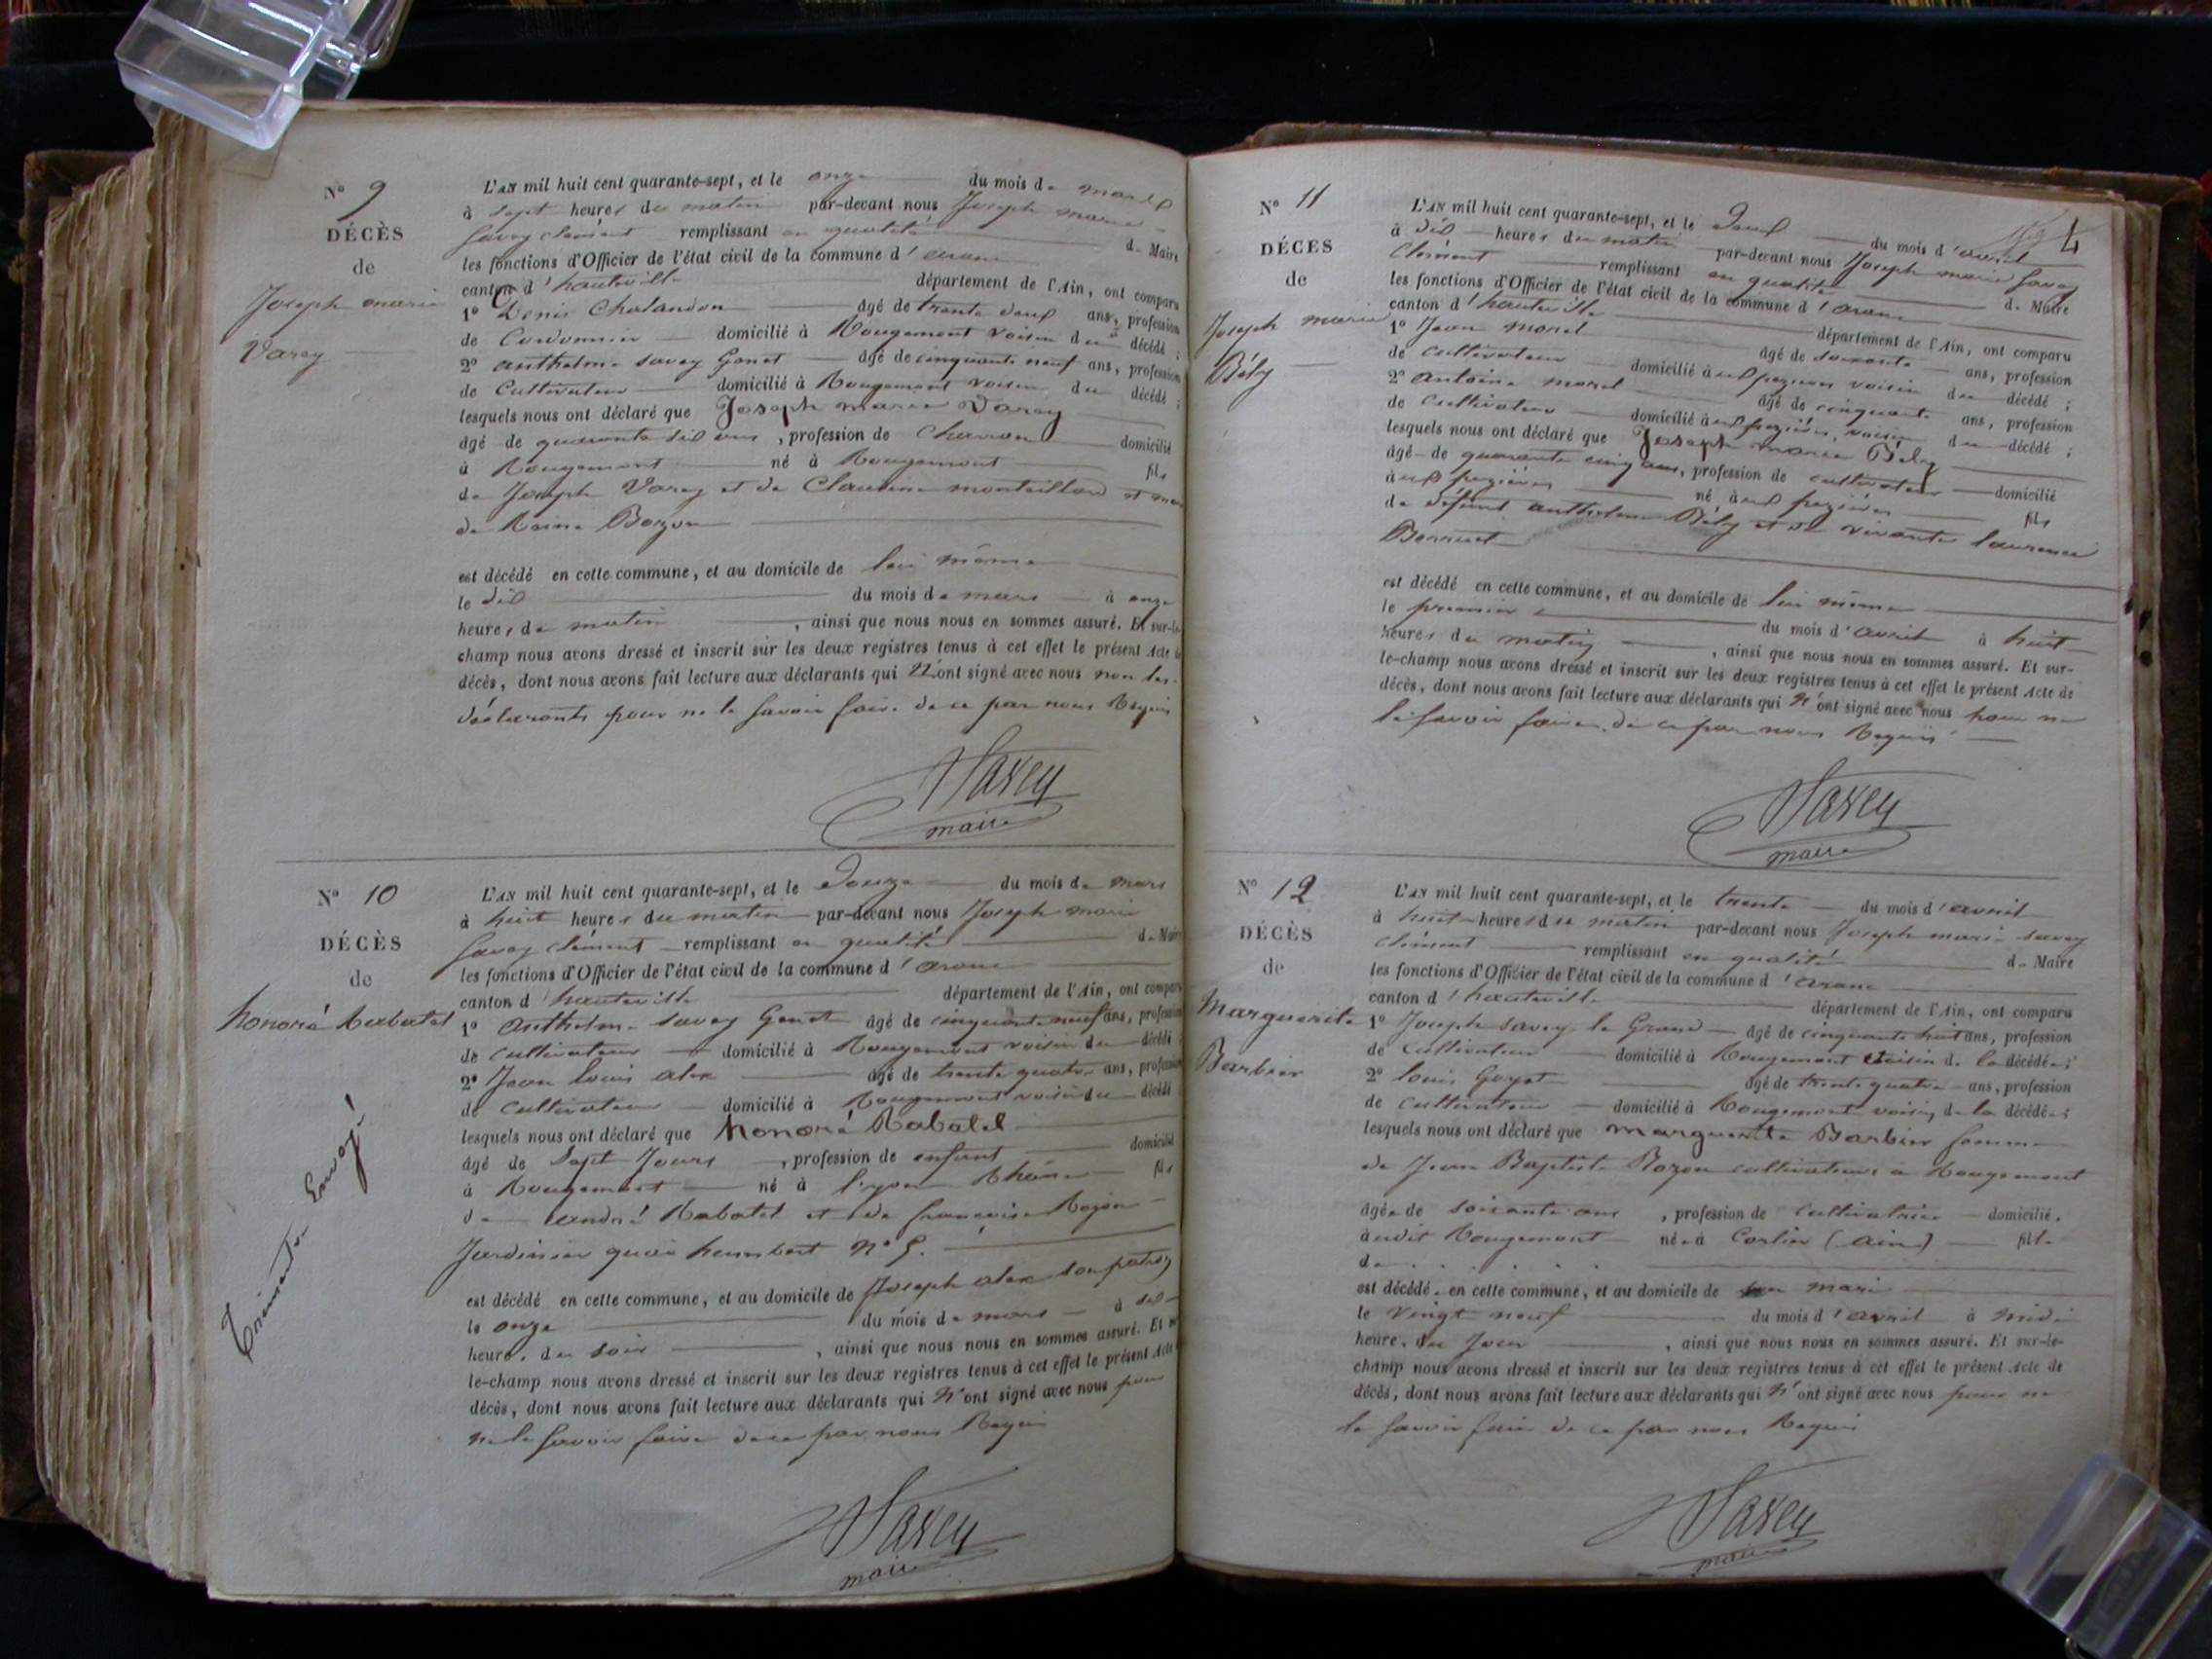 N° 9
DÉCÈS
de
Joseph marie
Varey
L'AN mil huit cent quarante-sept, et le onze du mois de mars
à sept heures du matin par-devant nous Joseph marie
Savey clément remplissant en qualité de Maire
les fonctions d'Officier de l'état civil de la commune d'aranc
canton d'hauteville département de l'Ain, ont comparu
1° Denis Chalandon âgé de trente deux ans, profession
de Cordonnier domicilié à Rougemont voisin du décédé ;
2° anthelme savey Genet âgé de cinquante neuf ans, profession
de Cultivateur domicilié à Rougemont voisin du décédé ;
lesquels nous ont déclaré que Joseph marie Varey
âgé de quarante six ans, profession de Charron domicilié
à Rougemont né à Rougemont fils
de Joseph Varey et de Claudine montaillard et mari
de Reine Bozon
est décédé en cette commune, et au domicile de lui même
le dix du mois de mars à onze
heures du matin, ainsi que nous nous en sommes assuré. Et sur-le-
champ nous avons dressé et inscrit sur les deux registres tenus à cet effet le présent Acte de
décès, dont nous avons fait lecture aux déclarants qui n'ont signé avec nous non les
déclarants pour ne le savoir faire de ce par nous Requis
Savey
maire
N° 10
DÉCÈS
de
honoré Rabatel
Trimestre Envoyé
L'AN mil huit cent quarante-sept, et le Douze du mois de mars
à huit heures du matin par-devant nous Joseph marie
Savey clément remplissant en qualité de Maire
les fonctions d'Officier de l'état civil de la commune d'aranc
canton d'hauteville département de l'Ain, ont comparu
1° anthelme savey Genet âgé de cinquante neuf ans, profession
de cultivateur domicilié à Rougemont voisin du décédé
2° Jean louis alex âgé de trente quatre ans, profession
de cultivateur domicilié à Rougemont voisin du décédé
lesquels nous ont déclaré que honoré Rabatel
âgé de Sept Jours, profession de enfant domicilié
à Rougemont né à lyon Rhône fils
de andré Rabatel et de francoise Rojon
Jardinier quai humbert N° 5.
est décédé en cette commune, et au domicile de Joseph alex
le onze du mois de mars à dix
heure. du soir, ainsi que nous nous en sommes assuré. Et sur-
le-champ nous avons dressé et inscrit sur les deux registres tenus à cet effet le présent Acte
décès, dont nous avons fait lecture aux déclarants qui n'ont signé avec nous pour
ne le savoir faire de ce par nous Requis
Savey
maire
N° 11
DÉCÈS
de
Joseph marie
Bély
4
L'AN mil huit cent quarante-sept, et le Deux du mois d'avril
à dix heures du matin par-devant nous Joseph marie Savey
Clément remplissant en qualité de Maire
les fonctions d'Officier de l'état civil de la commune d'aranc
canton d'hauteville département de l'Ain, ont comparu
1° Jean morel âgé de soixante ans, profession
de cultivateur domicilié à voisin du décédé ;
2° antoine morel âgé de cinquante ans, profession
de Cultivateur domicilié à voisin du décédé ;
lesquels nous ont déclaré que Joseph marie Bély
âgé de quarante cinq ans, profession de cultivateur domicilié
né fils
de défunt anthelme Bély et de vivante laurence
est décédé en cette commune, et au domicile de lui même
le premier du mois d'avril à huit
heures du matin, ainsi que nous nous en sommes assuré. Et sur-
le-champ nous avons dressé et inscrit sur les deux registres tenus à cet effet le présent Acte de
décès, dont nous avons fait lecture aux déclarants qui n'ont signé avec nous pour ne
le savoir faire de ce par nous Requis
Savey
maire
N° 12
DÉCÈS
de
Marguerite
Barbier
L'AN mil huit cent quarante-sept, et le trente du mois d'avril
à huit heures du matin par-devant nous Joseph marie savey
clément remplissant en qualité de Maire
les fonctions d'Officier de l'état civil de la commune d'aranc
canton d'hauteville département de l'Ain, ont comparu
1° Joseph savey le Grand âgé de cinquante huit ans, profession
de cultivateur domicilié à Rougemont voisin de la décédée ;
2° louis Goyet âgé de trente quatre ans, profession
de cultivateur domicilié à Rougemont voisin de la décédée ;
lesquels nous ont déclaré que marguerite Barbier femme
de Jean Baptiste Bozon cultivateur à Rougemont
âgée de soixante ans, profession de Cultivatrice domicilié.
audit Rougemont née à Corlier (ain) fille
de . . . . .
est décédé. en cette commune, et au domicile de son mari
le vingt neuf du mois d'avril à midi
heure. du Jour, ainsi que nous nous en sommes assuré. Et sur-le-
champ nous avons dressé et inscrit sur les deux registres tenus à cet effet le présent Acte de
décès, dont nous avons fait lecture aux déclarants qui n'ont signé avec nous pour ne
le savoir faire de ce par nous Requis
Savey
maire